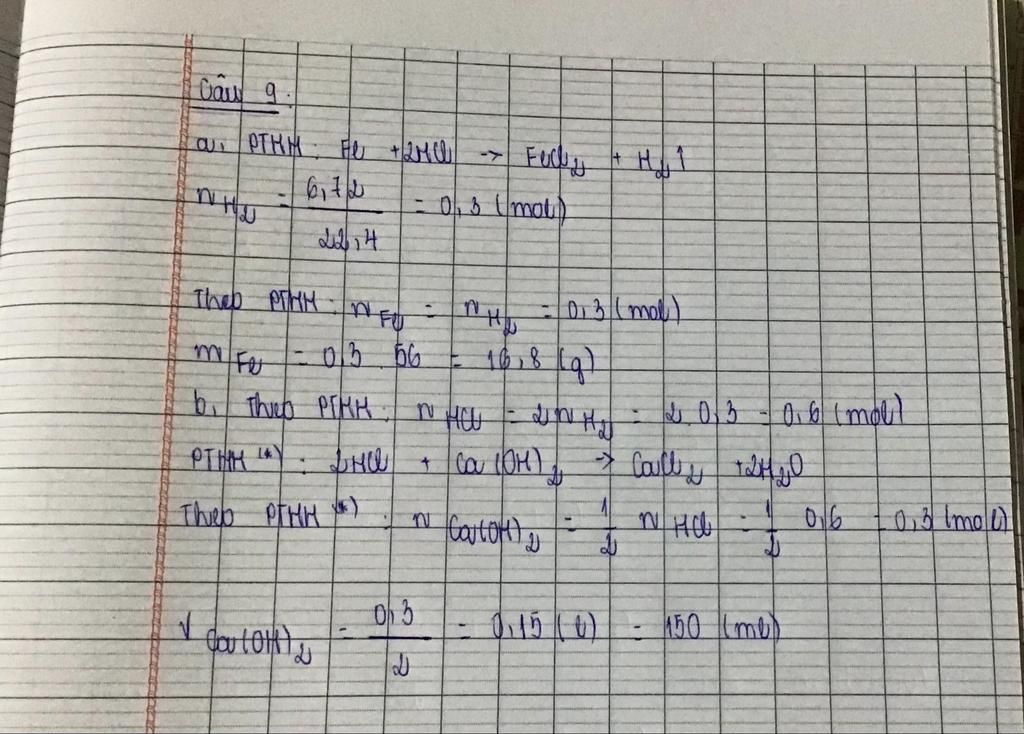 Câu 9:
a, PTHH: Fe + 2HCl → FeCl₂ + H₂↑
n H₂ = 6,72 / 22,4 = 0,3 (mol)
Theo PTHH: n Fe = n H₂ = 0,3 (mol)
m Fe = 0,3 . 56 = 16,8 (g)
b, Theo PTHH: n HCl = 2 n H₂ = 2 . 0,3 = 0,6 (mol)
PTHH (*): 2HCl + Ca(OH)₂ → CaCl₂ + 2H₂O
Theo PTHH (*): n Ca(OH)₂ = 1/2 n HCl = 1/2 0,6 = 0,3 (mol)
V Ca(OH)₂ = 0,3 / 2 = 0,15 (l) = 150 (ml)